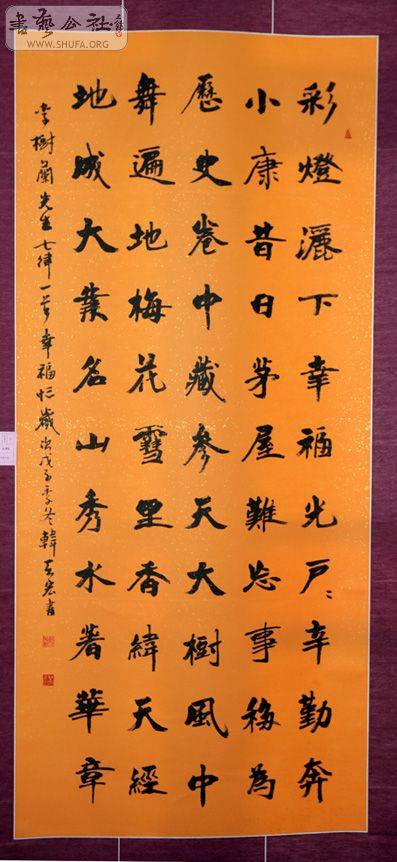 書藝公社
WWW.SHUFA.ORG
彩燈灑下幸福光戶〻辛勤奔
小康昔日茅屋難忘事移為
歷史卷中藏參天大樹風中
舞遍地梅花雪里香緯天經
地成大業名山秀水著華章
樹蘭先生七律一首幸福忙歲次戊子季冬韓宏書